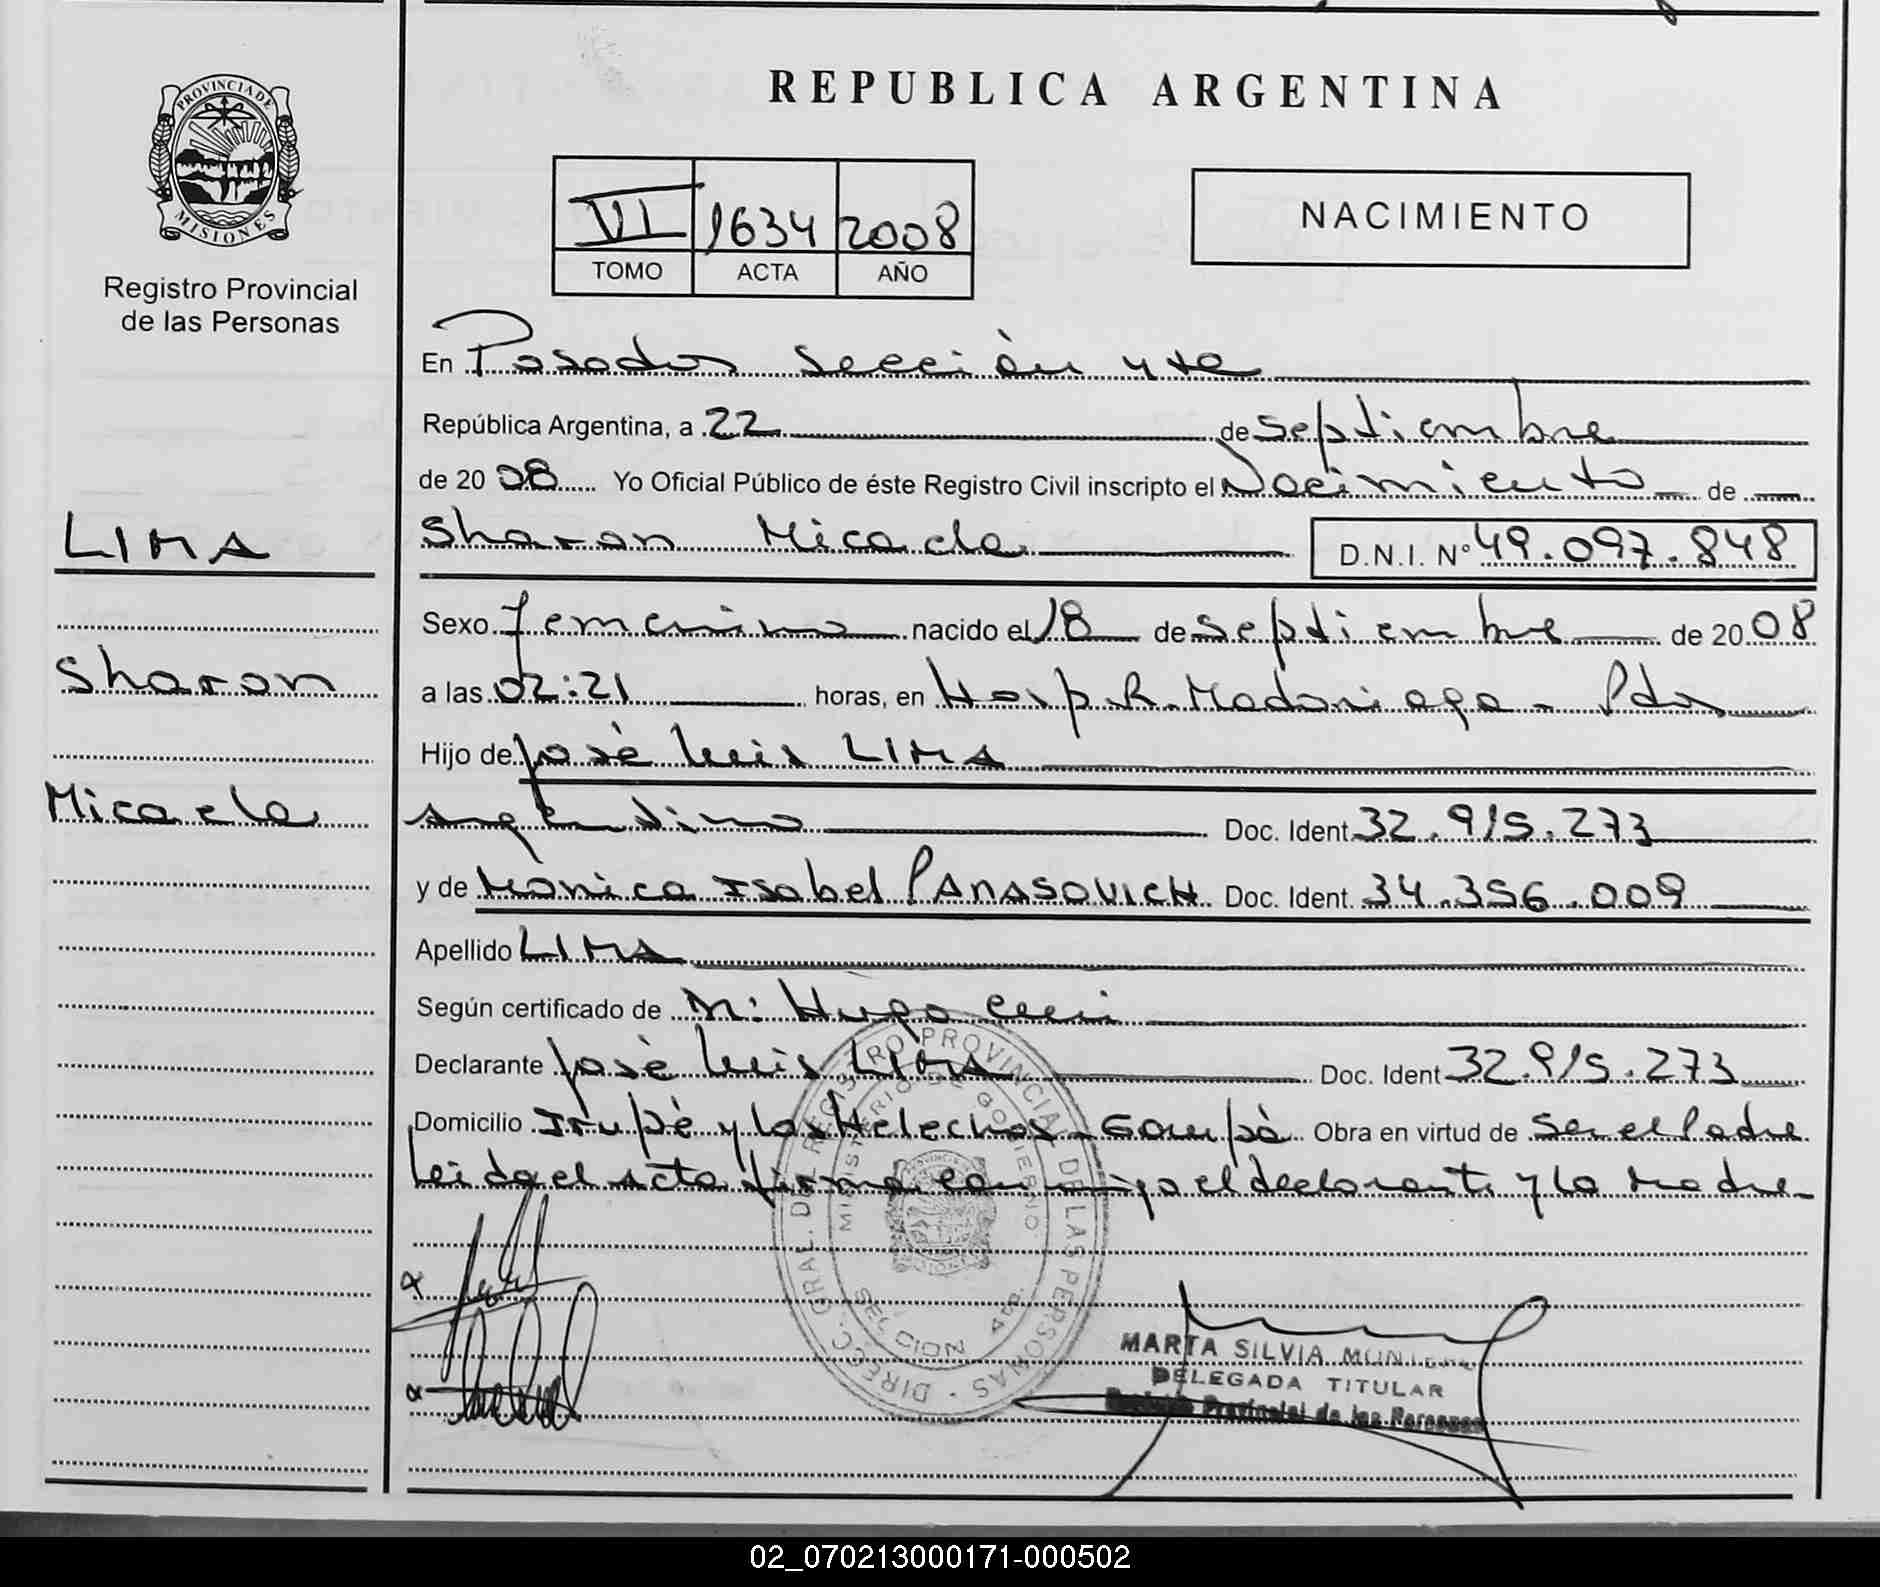 REPUBLICA ARGENTINA
PROVINCIA DE MISIONES
Registro Provincial
de las Personas
VI 1634 2008
TOMO ACTA AÑO
NACIMIENTO
En Posadas sección 4ta
República Argentina, a 22 de septiembre
de 2008 Yo Oficial Público de éste Registro Civil inscripto el Nacimiento de
Sharon Micaela D.N.I. N° 49.097.848
LIMA
Sharon
Micaela
Sexo femenino nacido el 18 de septiembre de 2008
a las 02:21 horas, en Hosp. R. Madariaga - Pdas
Hijo de José Luis LIMA
argentino Doc. Ident. 32.915.273
y de Mónica Isabel PANASOVICH Doc. Ident. 34.356.009
Apellido LIMA
Según certificado de Hugo
Declarante José Luis LIMA Doc. Ident 32.915.273
Domicilio Irupé y los Helechos - Garupá Obra en virtud de ser el Padre
leida el acta firma conmigo el declarante y la Madre
DIRECC. GRAL. DEL REGISTRO PROVINCIAL DE LAS PERSONAS
MINISTERIO DE GOBIERNO
SECCION 4ta
MARTA SILVIA
DELEGADA TITULAR
Registro Provincial de las Personas
02_070213000171-000502